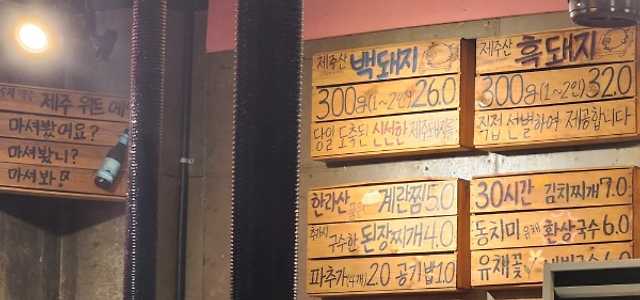 제주 위트 에
마셔봤어요?
마셔봤니?
마셔봐!
제주산 백돼지
300g(1~2인) 26.0
당일 도축된 신선한 제주돼지를
제주산 흑돼지
300g(1~2인) 32.0
직접 선별하여 제공합니다
한라산 계란찜 5.0
구수한 된장찌개 4.0
파추가(4개) 2.0 공기밥 1.0
30시간 김치찌개 7.0
동치미 유채 환상국수 6.0
유채꽃 비빔국수 6.0